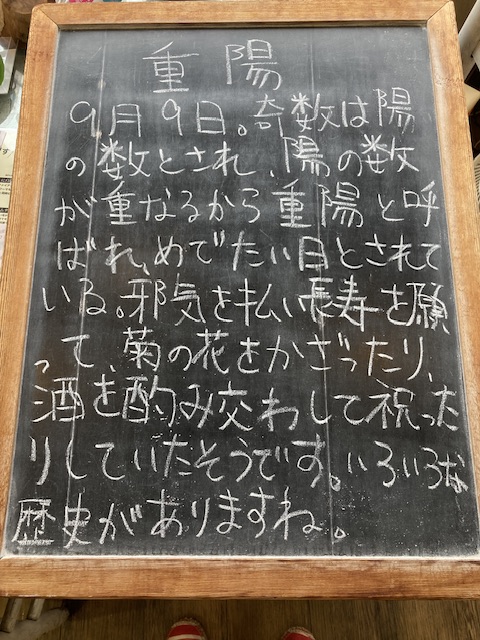 重陽
9月9日。奇数は陽
の数とされ、陽の数
が重なるから重陽と呼
ばれ、めでたい日とされて
いる。邪気を払い長寿を願
って、菊の花をかざったり、
酒を酌み交わして祝った
りしていたそうです。いろいろな
歴史がありますね。